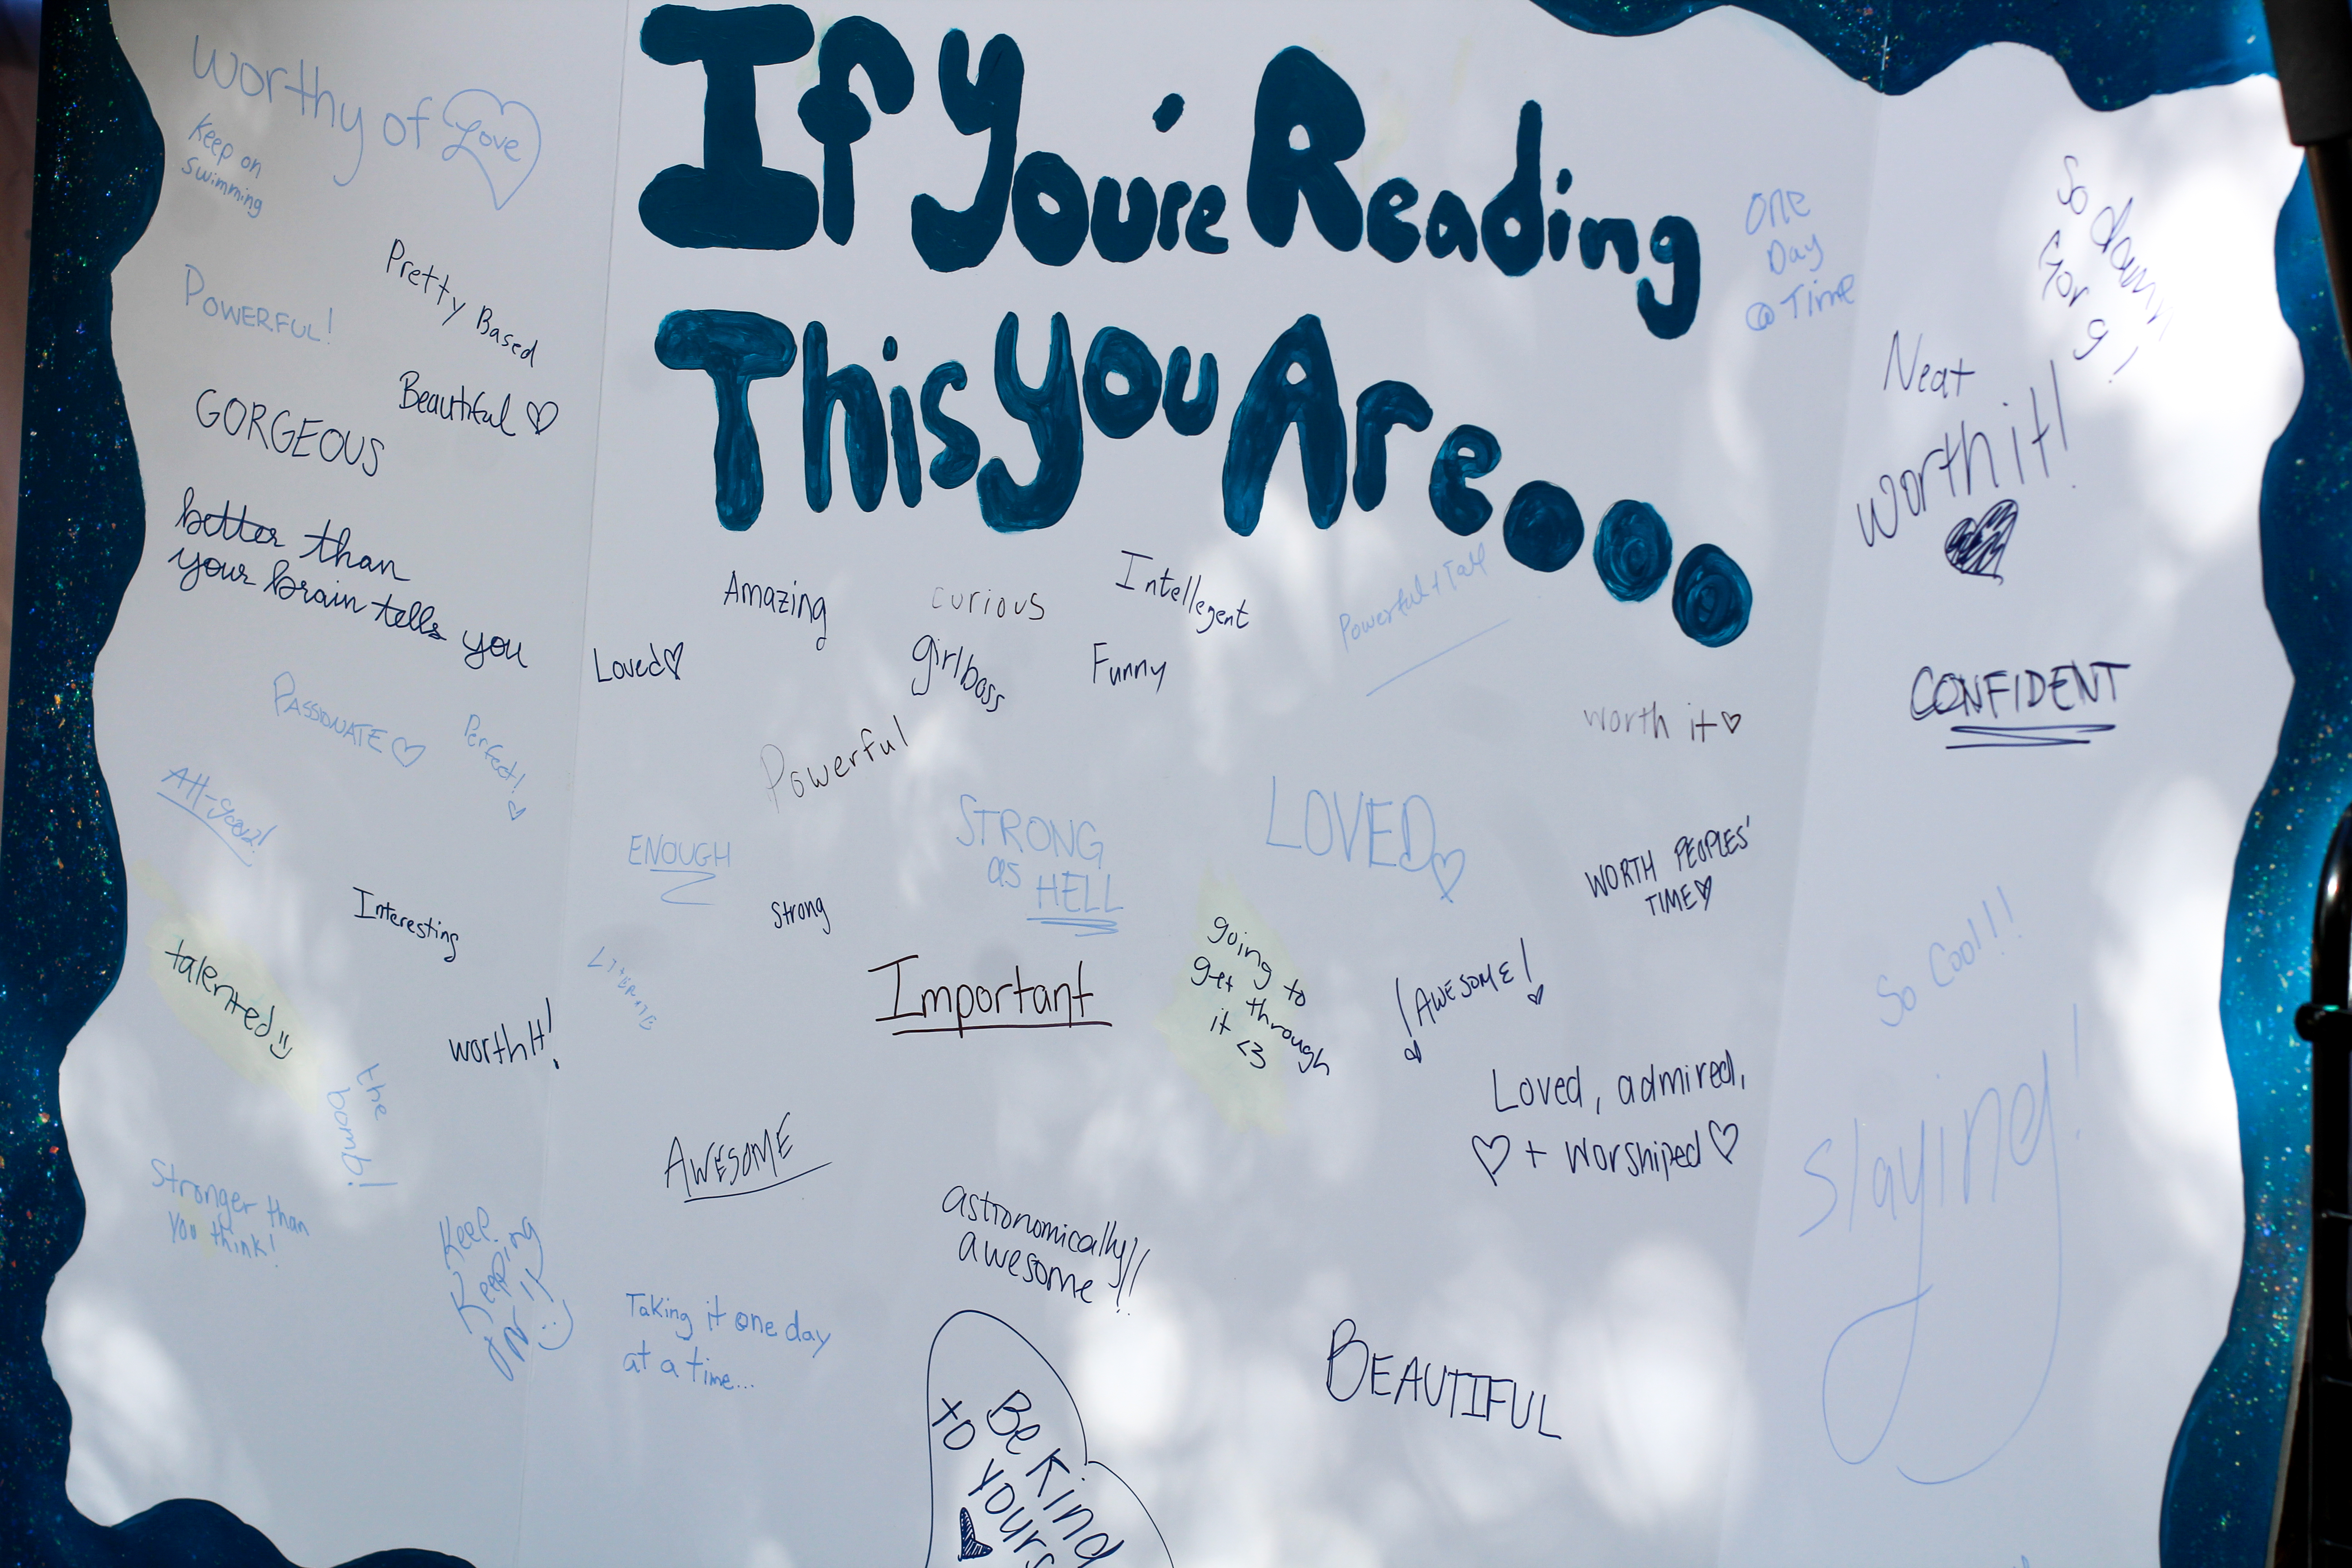 If You're Reading
This You Are...
worthy of Love
Keep on
swimming
POWERFUL!
Pretty Based
Beautiful
GORGEOUS
better than
your brain tells you
PASSIONATE
Perfect!
Interesting
talented
worth It!
the
bomb!
Stronger than
You think!
Keep
Keeping
ON!!
Amazing
curious
Intellegent
Loved
girlboss
Funny
Powerful + Tall
Powerful
worth it
ENOUGH
STRONG
as
HELL
LOVED
WORTH PEOPLES'
TIME
Strong
LITERATE
Important
going to
get through
it <3
!AWESOME!
Loved, admired,
+ worshiped
AWESOME
astronomically
awesome!!
Taking it one day
at a time...
BEAUTIFUL
Be Kind
to yours
ONE
Day
@ Time
So damn
Neat
worth it!
CONFIDENT
So Cool!!
Slaying!